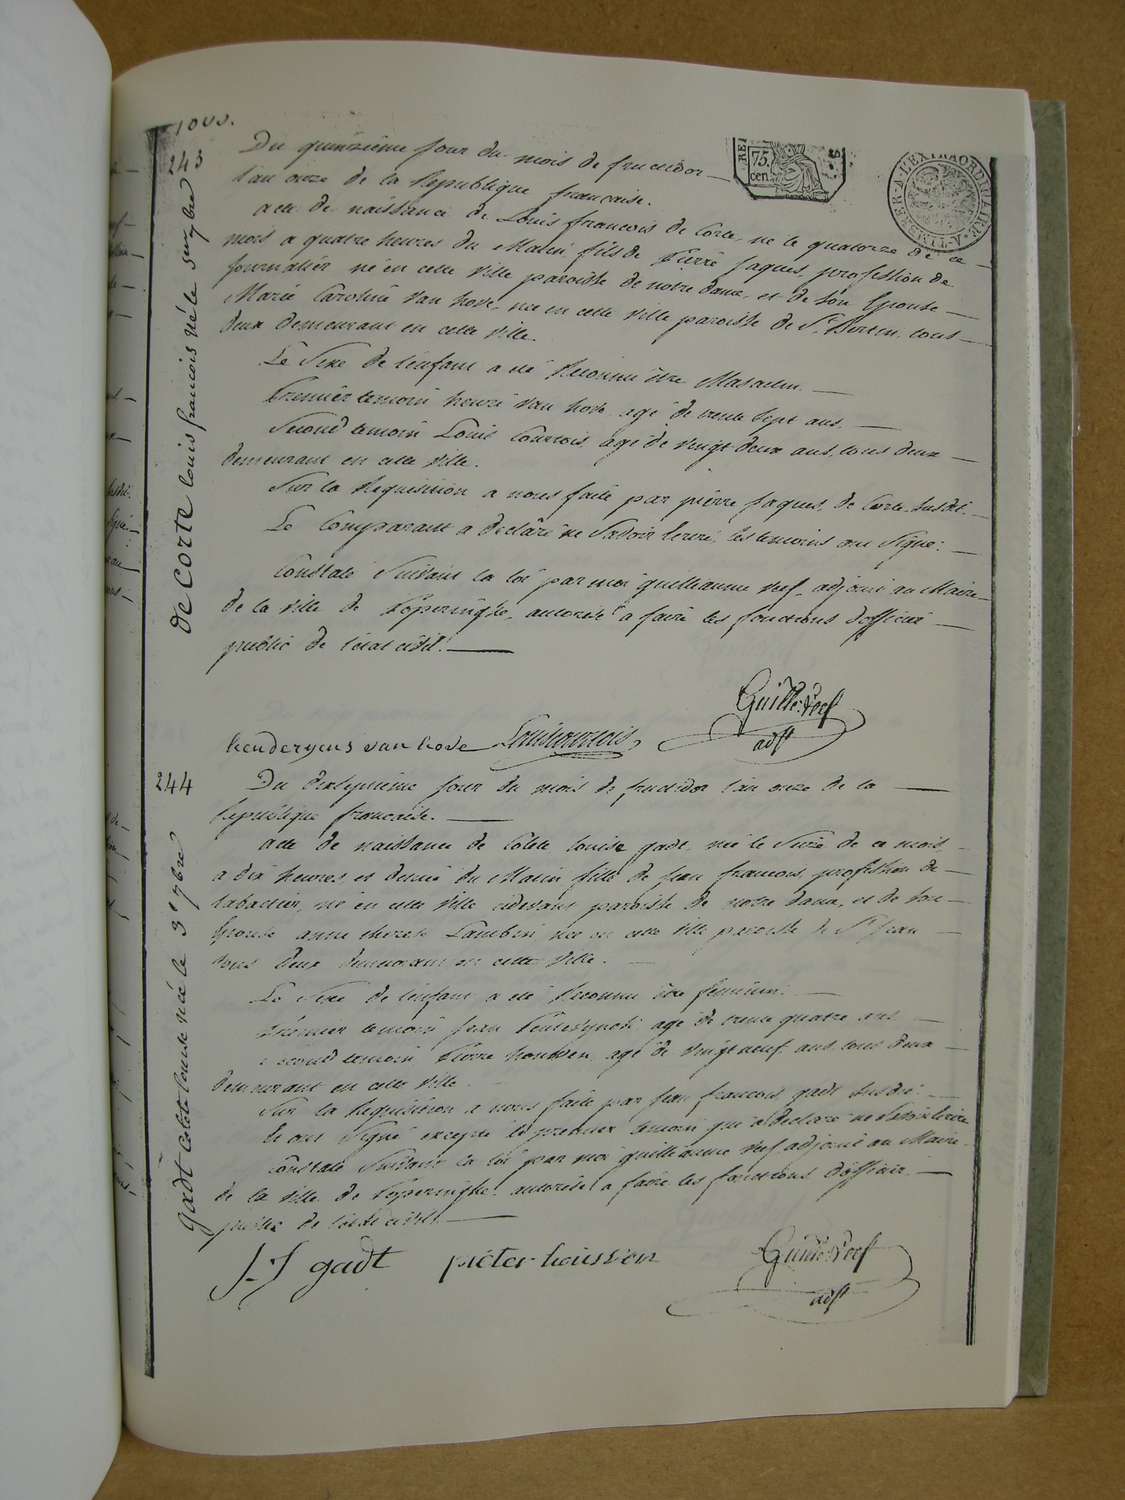 243
Du quinzieme jour du mois de fructidor
l'an onze de la Republique française.
acte de naissance de Louis francois de Corte, né le quatorze de ce
mois a quatre heures du Matin fils de Pierre Jaques, profession de
Journalier né en cette Ville paroisse de notre dame, et de son Epouse
Marie Caroline Van hove, née en cette Ville paroisse de St Bertin, tous
deux demeurant en cette Ville.
Le Sexe de l'enfant a été Reconnu être Masculin.
Premier temoin henri Van hove agé de trente sept ans.
Second temoin Louis Courtois agé de vingt deux ans, tous deux
demeurant en cette Ville.
Sur la Requisition a nous faite par pierre Jaques de Corte susdit.
Le Comparant a declaré ne Savoir Ecrire, les temoins ont Signé.
Constaté Suivant la loi par moi guilleaume Reef, adjoint au Maire
de la Ville de Poperinghe, autorisé a faire les fonctions d'officier
public de l'état civil.
Guille: Reef
adjt
hendergens van hove Louis Courtois
de Corte Louis francois né le 1er 7bre
75.
cen.
A L'EXTRAORDINAIRE
A TIMBRER
244
Du dixseptième jour du mois de fructidor l'an onze de la
Republique francaise.
acte de naissance de Colete Louise gadt, née le Seize de ce mois
a dix heures et demie du Matin fille de Jean francois, profession de
tabattier, né en cette Ville cidevant paroisse de notre dame, et de son
Epouse anne therese Lambin née en cette Ville paroisse de St Jean
tous deux demeurant en cette Ville.
Le Sexe de l'enfant a été Reconnu être feminin.
Premier temoin Jean agé de trente quatre ans
Second temoin Pierre housson agé de vingt neuf ans, tous deux
demeurant en cette Ville.
Sur la Requisition a nous faite par Jean francois gadt susdit.
Ils ont Signé excepté le premier temoin qui a declaré ne Savoir Ecrire
Constaté Suivant la loi par moi guilleaume Reef adjoint au Maire
de la Ville de Poperinghe, autorisé a faire les fonctions d'officier
public de l'état civil.
J-f gadt pieter housson
Guille: Reef
adjt
gadt Colete Louise née le 3e 7bre